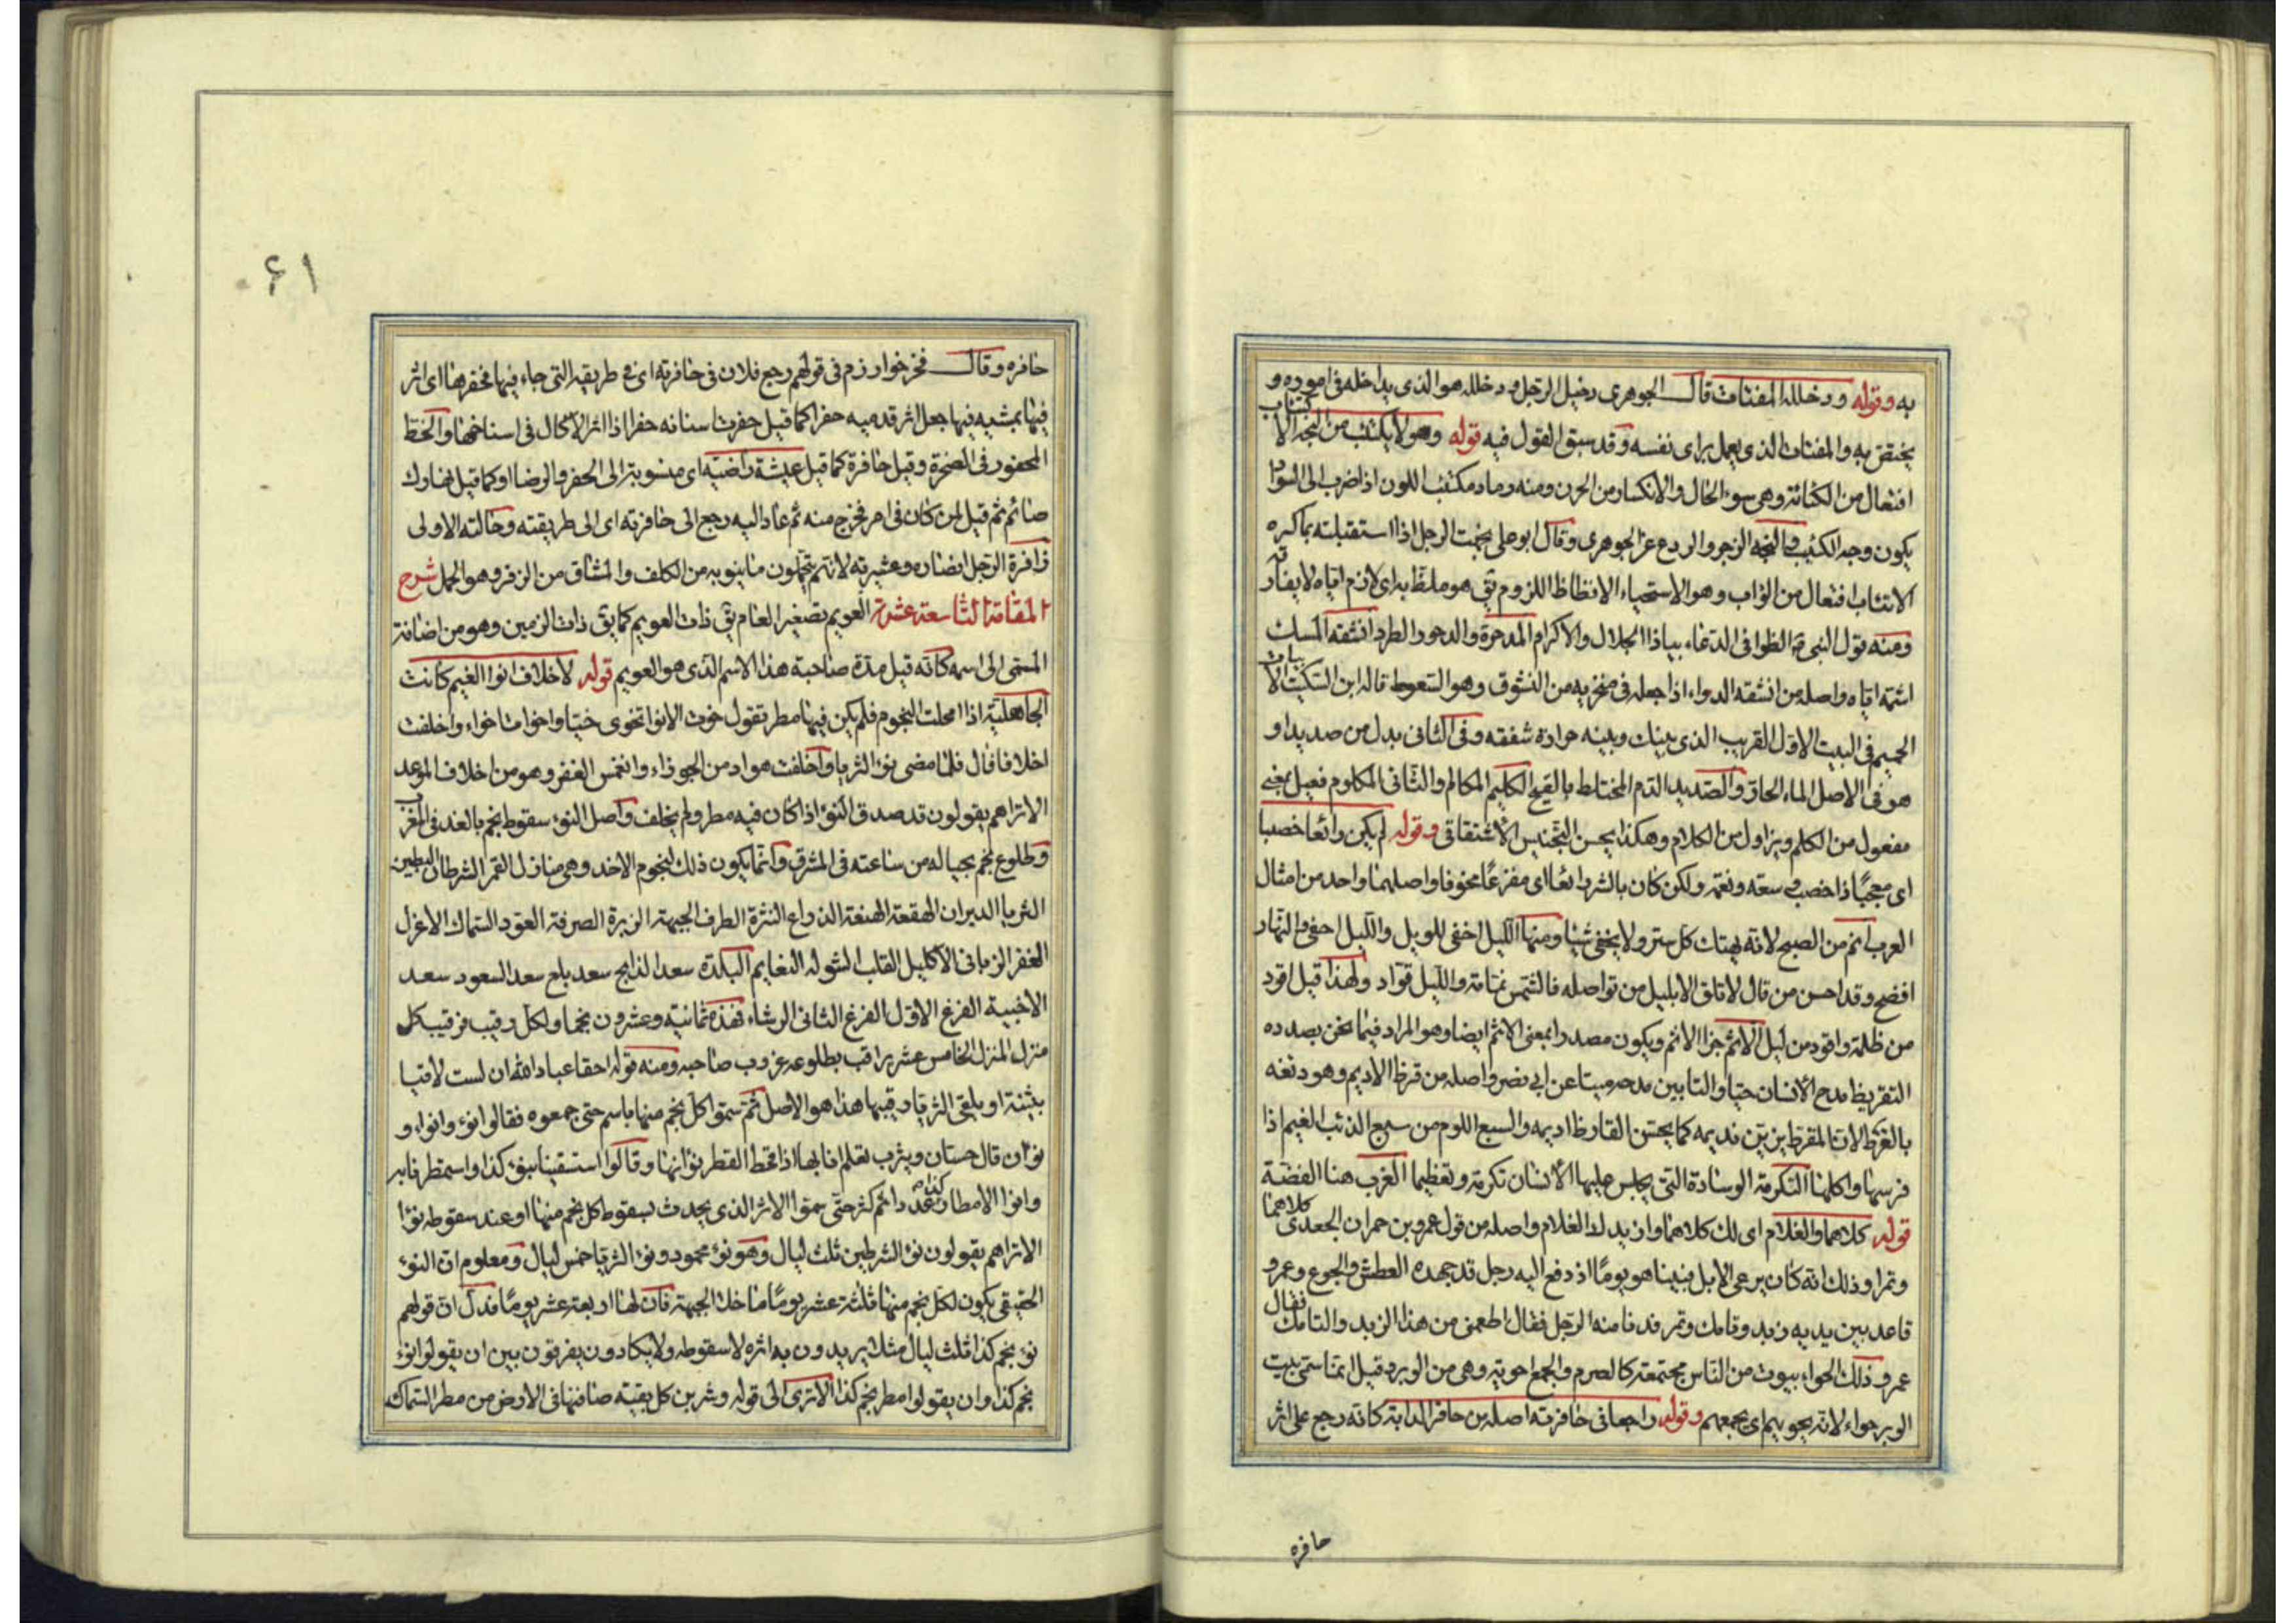 به وقوله ودخلله المفتات قال الجوهري دخيل الرجل ودخلله هو الذي يداخله في اموره و
يختص به والمفتات الذي يعمل براى نفسه وقد سبق القول فيه قوله وهو لا يكتئب من النجه الاكتئاب
افتعال من الكئابة وهي سوء الحال والانكسار من الحزن ومنه رماد مكتئب اللون اذا ضرب الى السواد
يكون وجه الكئيب والنجه الزجر والردع عن الجوهري وقال ابو على نجهت الرجل اذا استقبلته بما كره
الاتئاب افتعال من الواب وهو الاستحياء الالظاظ اللزوم يق هو ملظ به اى لازم اياه لا يفارقه
ومنه قول النبى الظوا فى الدعاء بياذا الجلال والاكرام المدحرة والدحور الطرد انشقه المسك
اشمه اياه واصله من انشقه الدواء اذا جعله فى منخريه من النشوق وهو السعوط قاله ابن السكيت الابيات
الحميم فى البيت الاول القريب الذى بينك وبينه حرارة شفقه وفى الثانى بدل من صديد او
هو فى الاصل الماء الحار والصديد الدم المختلط بالقيح الكليم المكالم والثانى المكلوم فعيل بمعنى
مفعول من الكلم ويزاول من الكلام وهكذا يحسن التجنيس الاشتقاقى وقوله لم يكن رائعا خصبا
اى معجبا ذا خصب فى سعة ونعمة ولكن كان بالشر رائعا اى مفزعا مخوفا واصلهما واحد من امثال
العرب انم من الصبح لانه يهتك كل ستر ولا يخفى شيئا ومنها الليل اخفى للويل والليل اخفى والنهار
افضح وقد احسن من قال لا تلق الا بليل من تواصله فالشمس نمامة والليل قواد ولهذا قيل اقود
من ظلمة واقود من ليل الاثم جزا الاثم ويكون مصدرا بمعنى الاثم ايضا وهو المراد فيما نحن بصدده
التقريظ مدح الانسان حيا والتابين مدحه ميتا عن ابى نصر واصله من قرظ الاديم وهو دبغه
بالقرظ لان المقرظ يزين نديمه كما يحسن القارظ اديمه والسبع اللوم من سبع الذئب الغنم اذا
فرسها واكلها التكرمة الوسادة التى يجلس عليها الانسان تكرمة وتعظيما الغرب هنا الفضة
قوله كلاهما والغلام اى لك كلاهما وازيدك الغلام واصله من قول عمرو بن حمران الجعدى كلاهما
وتمرا وذلك انه كان يرعى الابل فبينا هو يوما اذ دفع اليه رجل قد جهده العطش والجوع وعمرو
قاعد بين يديه زبد وتامك وتمر فدنا منه الرجل فقال اطعمنى من هذا الزبد والتامك فقال
عمرو ذلك الحواء بيوت من الناس مجتمعة كالصرم والجمع احوية وهى من الوبر وقيل انما سمى بيت
الوبر حواء لانه يحويهم اى يجمعهم وقوله راجعا فى حافرته اصله من حافر الدابة كانه رجع على اثر
حافره
۶۱
حافره وقال فخر خوارزم فى قولهم رجع فلان فى حافرته اى فى طريقه التى جاء فيها فحفرها اى اثر
فيها بمشيه فيها جعل اثر قدميه حفرا كما قيل حفرت اسنانه حفرا اذا اثر الاكال فى اسناخها والخط
المحفور فى الصخرة وقيل حافرة كما قيل عيشة راضية اى منسوبة الى الحفر والرضا او كما قيل نهارك
صائم ثم قيل لمن كان فى امر فخرج منه ثم عاد اليه رجع الى حافرته اى الى طريقته وحالته الاولى
زافرة الرجل انصاره وعشيرته لانهم يتحملون ما ينوبه من الكلف والمشاق من الزفر وهو الحمل شرح
المقامة التاسعة عشرة العويم تصغير العام يق ذات العويم كما يق ذات الزمين وهو من اضافة
المسمى الى اسمه كانه قيل مدة صاحبة هذا الاسم الذى هو العويم قوله لاخلاف انوا الغيم كانت
الجاهلية اذا امحلت النجوم فلم يكن فيها مطر تقول خوت الانوا تخوى خيا واخوا ما خواء واخلفت
اخلافا قال فلما مضى نوء الثريا واخلفت هواد من الجوزاء وانغمس الغفر وهو من اخلاف الموعد
الا تراهم يقولون قد صدق النوء اذا كان فيه مطر ولم يخلف واصل النوء سقوط نجم بالغد فى المغرب
وطلوع نجم بحياله من ساعته فى المشرق وانما يكون ذلك لنجوم الاخذ وهى منازل القمر الشرطان البطين
الثريا الدبران الهقعة الهنعة الذراع النثرة الطرف الجبهة الزبرة الصرفة العوا السماك الاعزل
الغفر الزبانى الاكليل القلب الشوله النعايم البلدة سعد الذابح سعد بلع سعد السعود سعد
الاخبية الفرغ الاول الفرغ الثانى الرشاء فهذه ثمانية وعشرون نجما ولكل رقيب فرقيب كل
منزل المنزل الخامس عشر يراقب بطلوعه غروب صاحبه ومنه قوله احقا عباد الله ان لست لاقيا
بثينة او يلقى الثريا رقيبها هذا هو الاصل ثم سموا كل نجم منها باسم حتى جمعوه فقالوا نوء وانواء و
نوان قال حسان ويثرب تعلم انا بها اذا قحط القطر نوانها وقالوا استسقينا بنوء كذا واستمطرنا به
وانوا الامطار دائم كثر حتى سموا الاثر الذى يحدث بسقوط كل نجم منها او عند سقوطه نوءا
الا تراهم يقولون نوء الشرطين ثلث ليال وهو نوء محمود ونوء الثريا خمس ليال ومعلوم ان النوء
الحقيقى يكون لكل نجم منها ثلثة عشر يوما ما خلا الجبهة فان لها اربعة عشر يوما فدل ان قولهم
نوء نجم كذا ثلث ليال مثلا يريدون به اثره لا سقوطه ولا يكادون يفرقون بين ان يقولوا نوء
نجم كذا وان يقولوا مطر نجم كذا الا ترى الى قوله وشربن كل بقية صادفنها فى الارض من مطر السماك